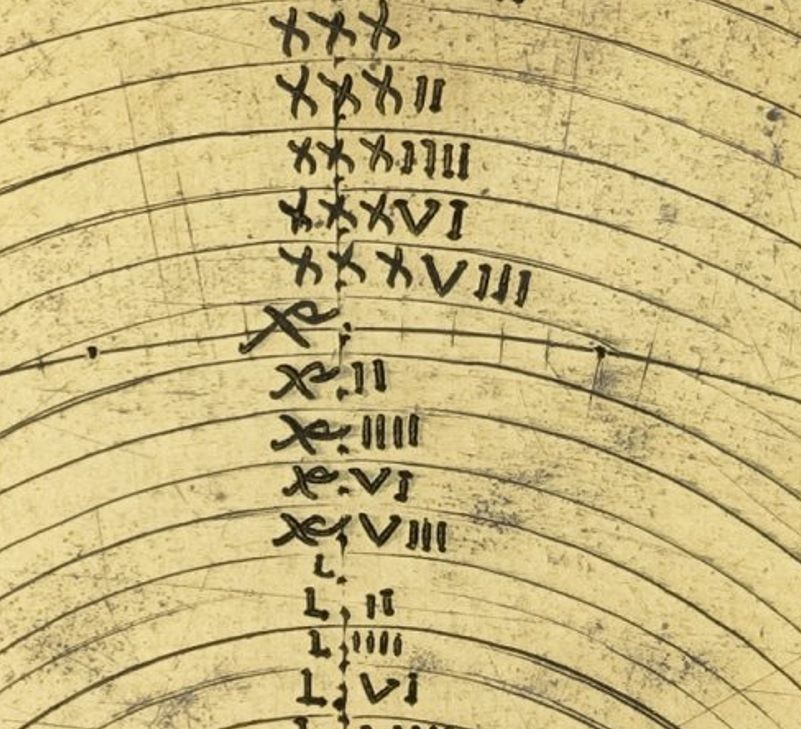 XXX
XXXII
XXXIIII
XXXVI
XXXVIII
XL
XL.II
XL.IIII
XL.VI
XL.VIII
L
L.II
L.IIII
L.VI